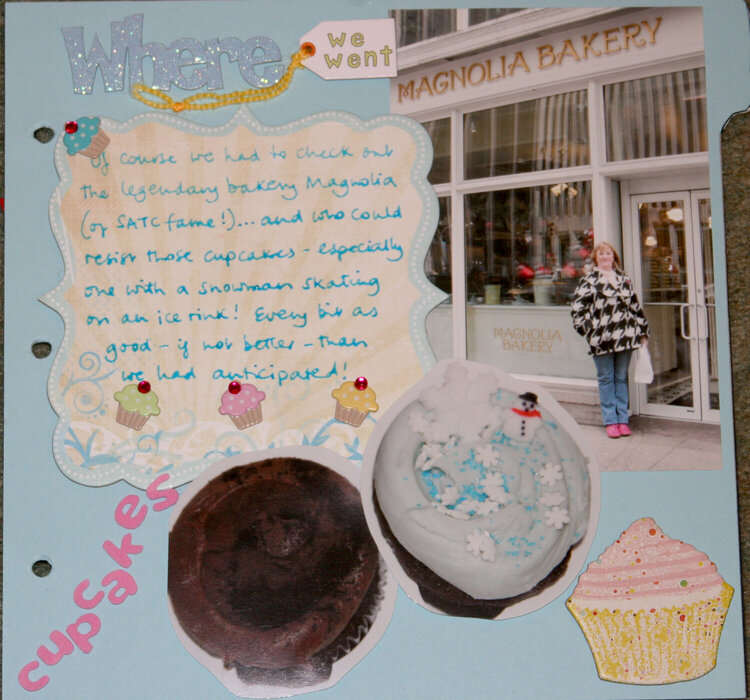 Where
we
went
MAGNOLIA BAKERY
Of course we had to check out
the legendary bakery Magnolia
(of SATC fame!)... and who could
resist those cupcakes - especially
one with a snowman skating
on an ice rink! Every bit as
good - if not better - than
we had anticipated!
MAGNOLIA
BAKERY
cupcakes